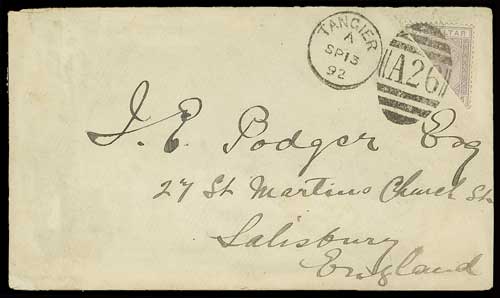 TANGIER
A
SP 13
92
A26
LTAR
J. E. Podger Esq
27 St Martins Church St.
Salisbury
England